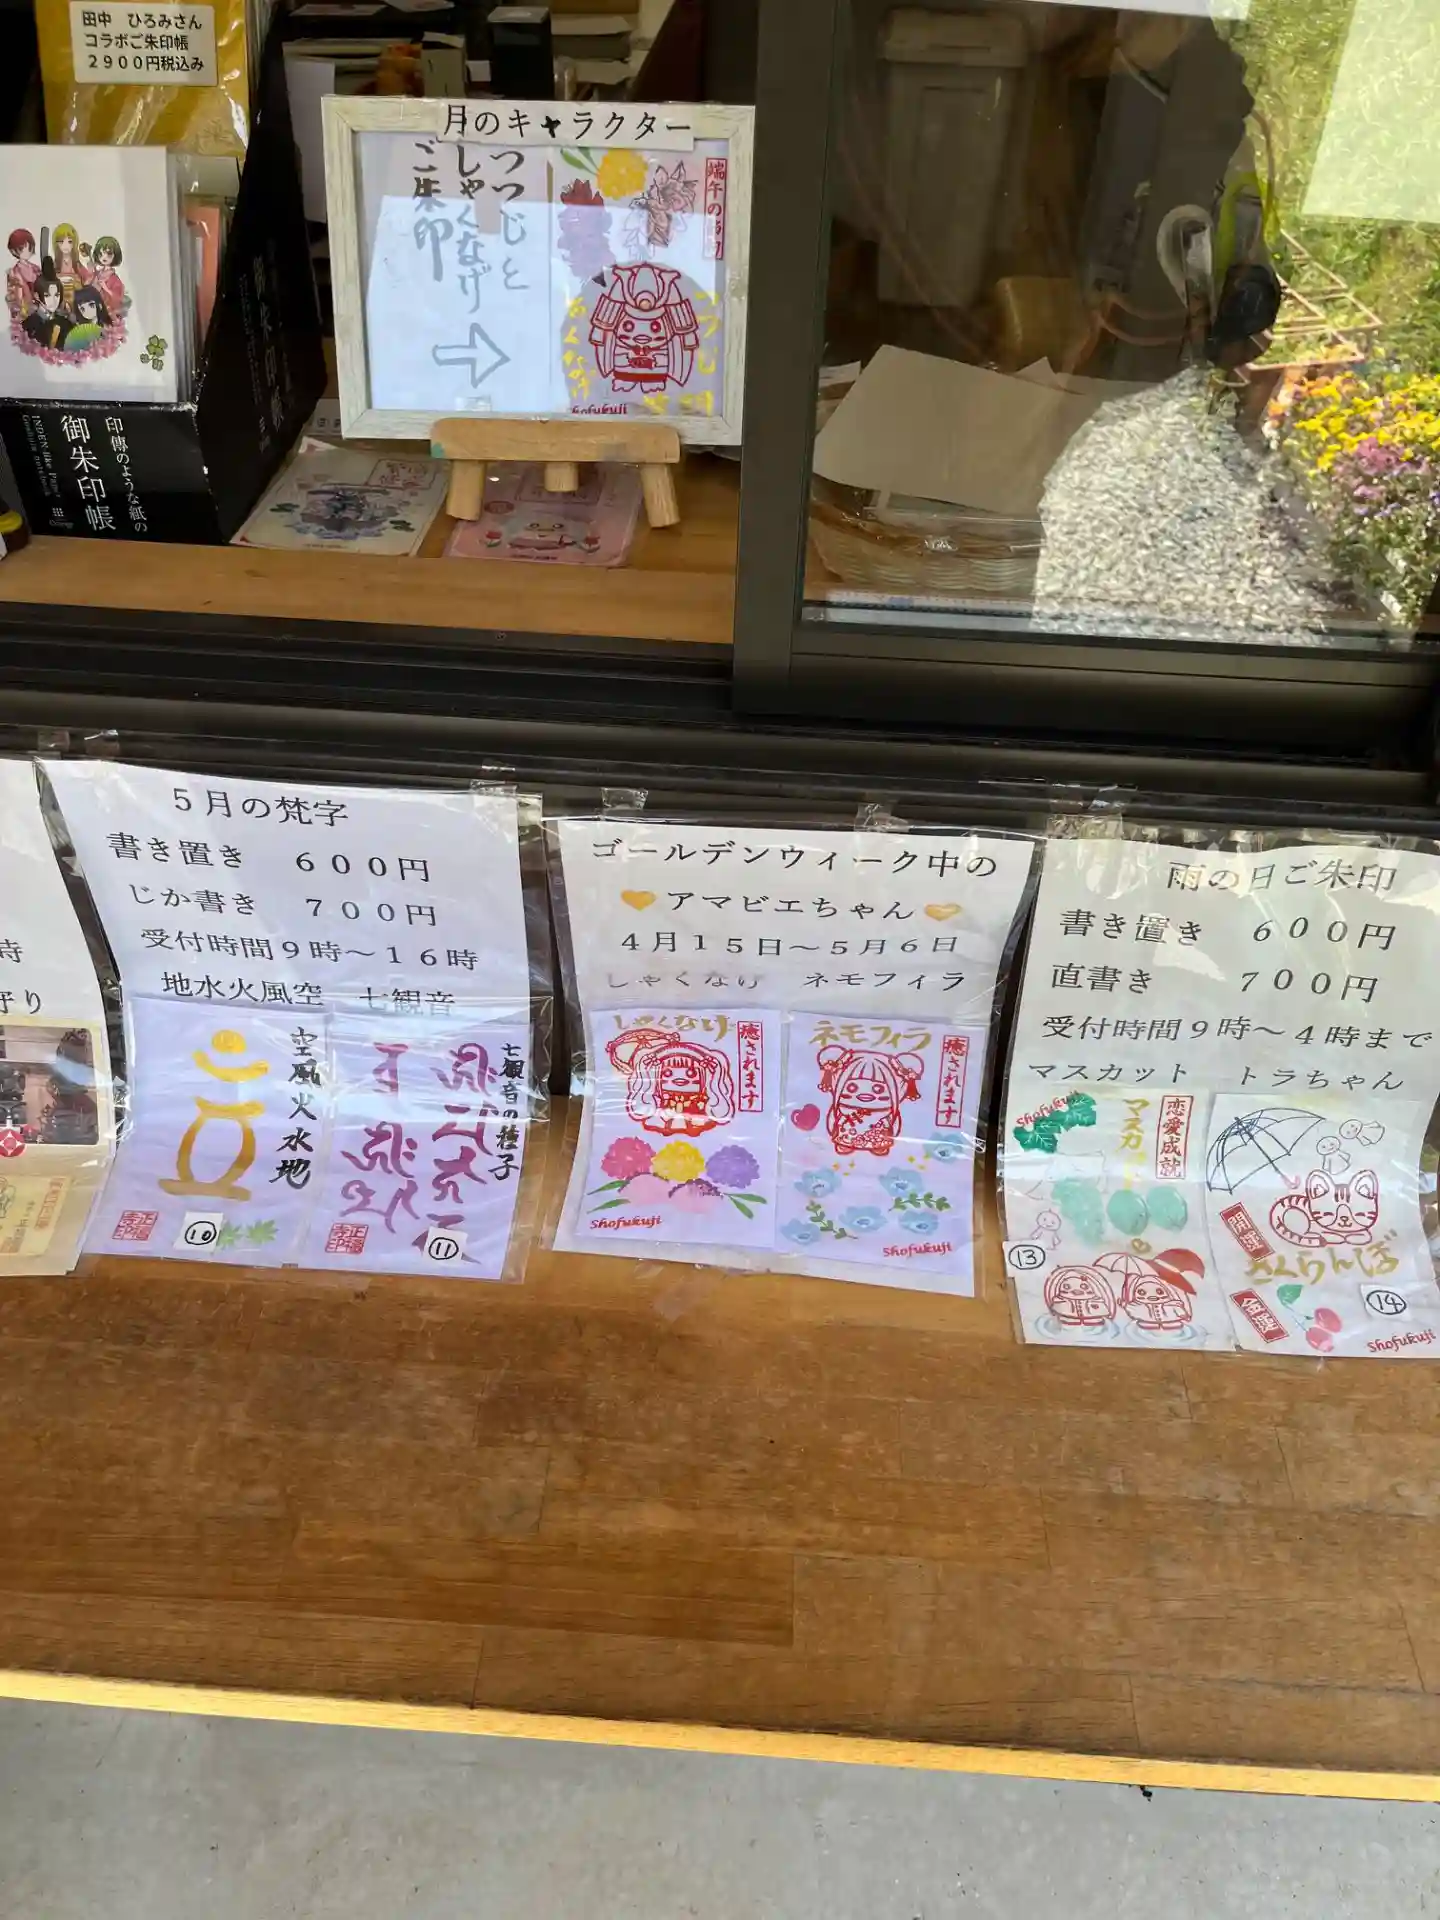 田中　ひろみさん
コラボご朱印帳
２９００円税込み
月のキャラクター
つつじと
しゃくなげ
ご朱印
端午の節句
つつじ
しゃくなげ
Shofukuji
印傳のような紙の
御朱印帳
INDEN-like Paper
５月の梵字
書き置き　６００円
じか書き　７００円
受付時間９時～１６時
地水火風空　七観音
空風火水地
正福寺印
⑩
七観音の種子
正福寺印
⑪
ゴールデンウィーク中の
アマビエちゃん
４月１５日～５月６日
しゃくなげ　ネモフィラ
しゃくなげ
癒されます
Shofukuji
ネモフィラ
癒されます
Shofukuji
雨の日ご朱印
書き置き　６００円
直書き　７００円
受付時間９時～４時まで
マスカット　トラちゃん
Shofukuji
マスカット
恋愛成就
⑬
開運
さくらんぼ
金運
⑭
Shofukuji
時
守り